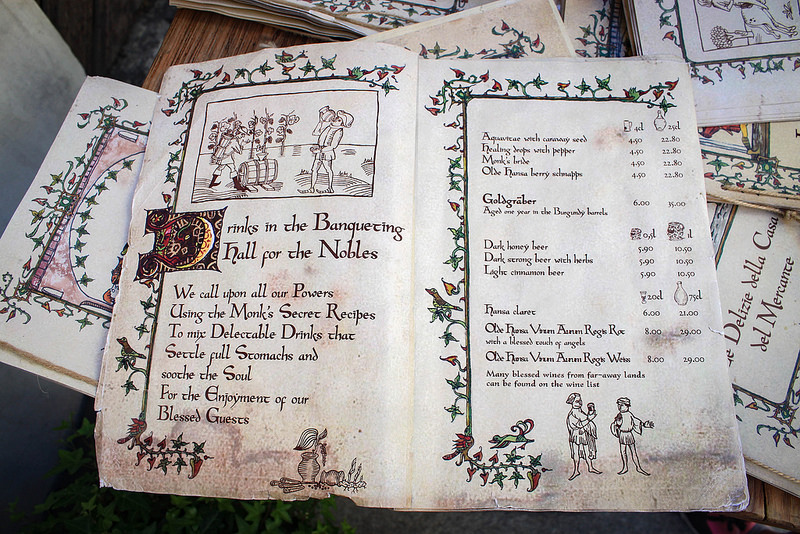 Drinks in the Banqueting
Hall for the Nobles
We call upon all our Powers
Using the Monk's Secret Recipes
To mix Delectable Drinks that
Settle full Stomachs and
soothe the Soul
For the Enjoyment of our
Blessed Guests
4cl 25cl
Aquavitae with caraway seed 4.50 22.80
Healing drops with pepper 4.50 22.80
Monk's bride 4.50 22.80
Olde Hansa berry schnapps 4.50 22.80
Goldgräber 6.00 35.00
Aged one year in the Burgundy barrels
0,5l 1l
Dark honey beer 5.90 10.50
Dark strong beer with herbs 5.90 10.50
Light cinnamon beer 5.90 10.50
20cl 75cl
Hansa claret 6.00 21.00
Olde Hansa Vinum Aurum Regis Rot 8.00 29.00
with a blessed touch of angels
Olde Hansa Vinum Aurum Regis Weiss 8.00 29.00
Many blessed wines from far-away lands
can be found on the wine list
Delizie della Casa
del Mercante